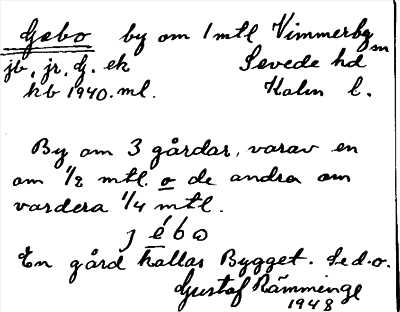 Gæbo by om 1 mtl Vimmerby sn
jb, jr, G. ek Sevede hd
kb 1940. ml. Kalm l.
By om 3 gårdar, varav en
om 1/2 mtl. o de andra om
vardera 1/4 mtl.
j é b ω
En gård kallas Bygget. Se d.o.
Gustaf Rämminge
1948